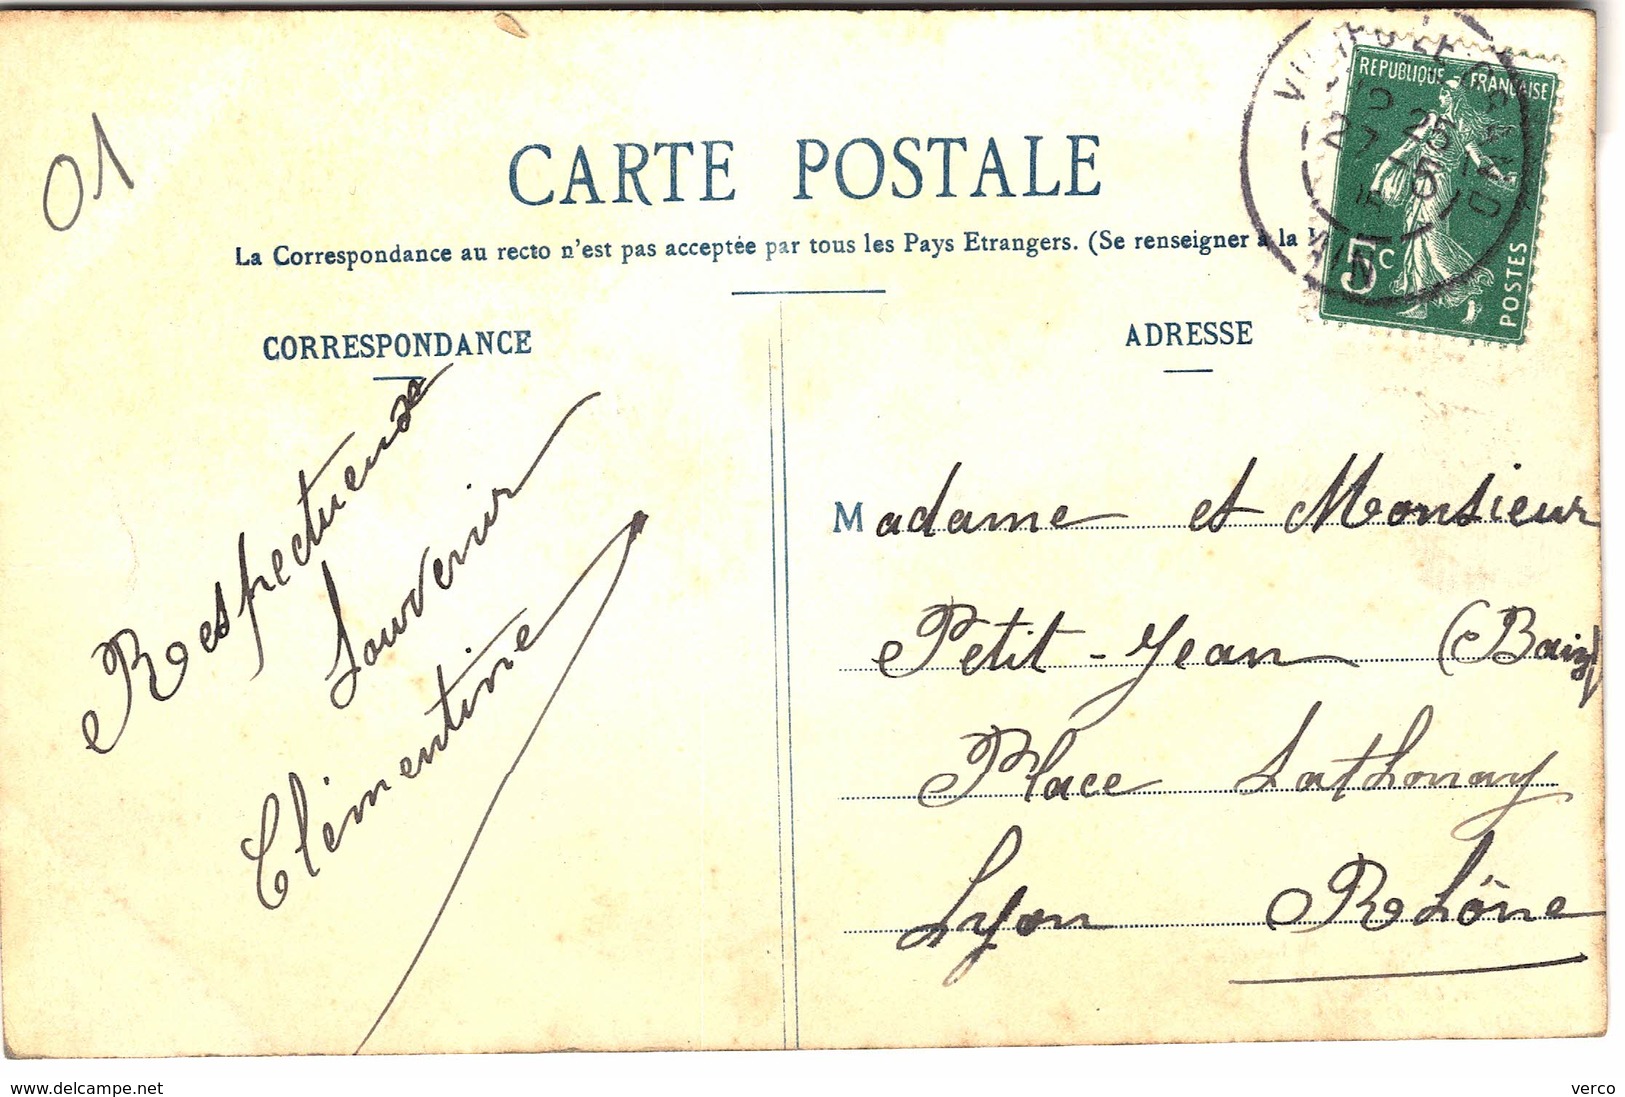 01
CARTE POSTALE
La Correspondance au recto n'est pas acceptée par tous les Pays Etrangers. (Se renseigner à la
REPUBLIQUE FRANÇAISE
5c
POSTES
25
27 5
AIN
CORRESPONDANCE
Respectueux
Souvenir
Clémentine
ADRESSE
Madame et Monsieur
Petit-Jean
Place Lathonay
Lyon Rhône
www.delcampe.net
verco